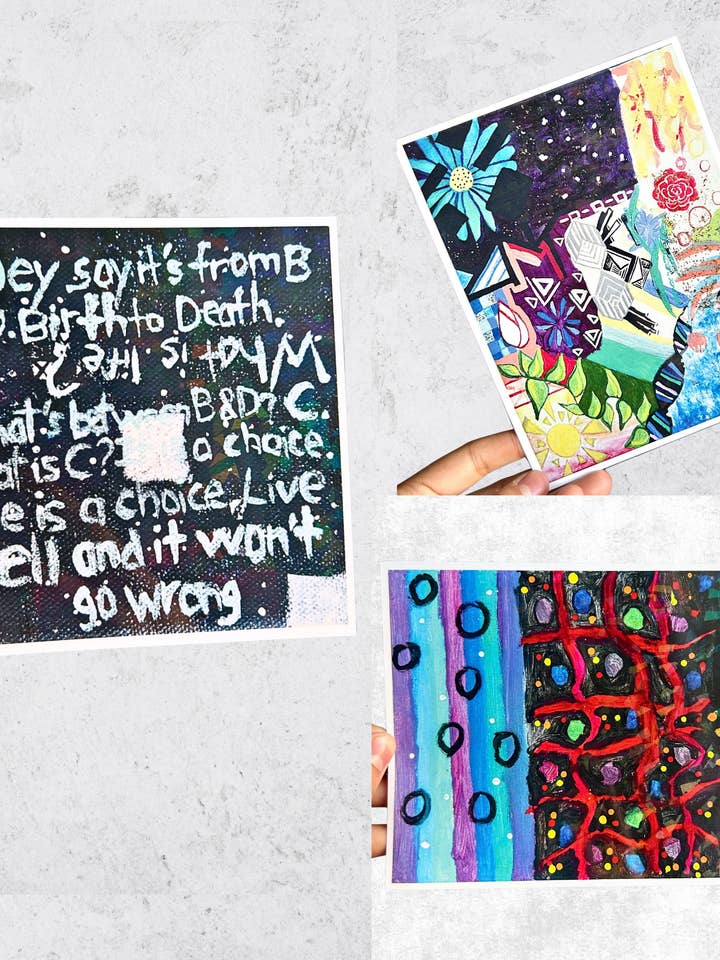 ey say it's from B
D. Birth to Death.
What is life?
hat's between B&D? C.
at is C? a choice.
e is a choice, Live
ell and it won't
go wrong